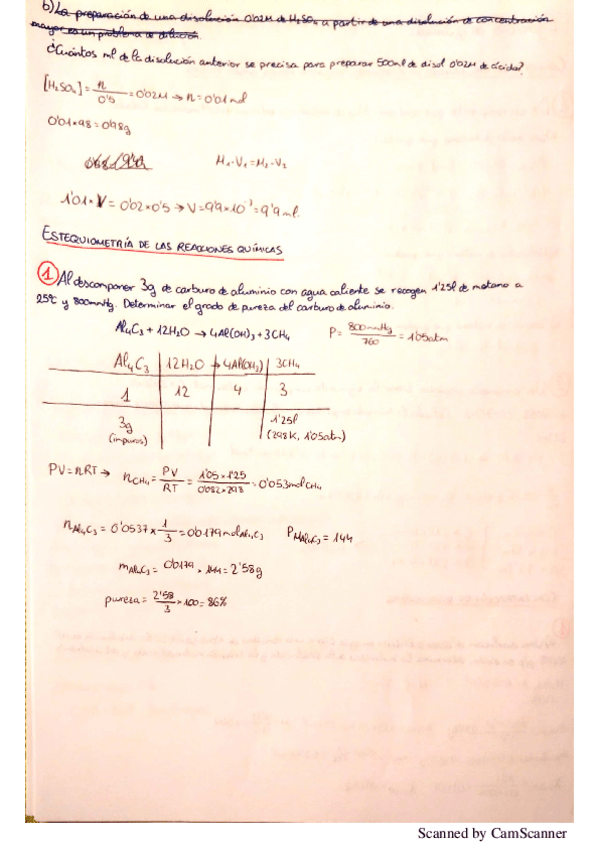 b) La preparación de una disolución 0'02M de H₂SO₄ a partir de una disolución de concentración
mayor es un problema de dilución.
¿Cuántos ml de la disolución anterior se precisa para preparar 500ml de disol 0'02M de ácido?
[H₂SO₄] = n / 0'5 = 0'02M → n = 0'01 mol
0'01 × 98 = 0'98g
M₁·V₁ = M₂·V₂
1'01 × V = 0'02 × 0'5 → V = 9'9 × 10⁻³ = 9'9 ml.
ESTEQUIOMETRÍA DE LAS REACCIONES QUÍMICAS
1 Al descomponer 3g de carburo de aluminio con agua caliente se recogen 1'25l de metano a
25ºC y 800mmHg. Determinar el grado de pureza del carburo de aluminio.
Al₄C₃ + 12H₂O → 4Al(OH)₃ + 3CH₄ P = 800mmHg / 760 = 1'05atm
Al₄C₃ 12H₂O → 4Al(OH₃) 3CH₄
1 12 4 3
3g 1'25l
(impuros) (298K, 1'05atm)
PV = nRT → nCH₄ = PV / RT = 1'05 × 1'25 / 0'082 × 298 = 0'053 mol CH₄
nAl₄C₃ = 0'0537 × 1/3 = 0'0179 mol Al₄C₃ PMAl₄C₃ = 144
mAl₄C₃ = 0'0179 × 144 = 2'58g
pureza = 2'58 / 3 × 100 = 86%
Scanned by CamScanner